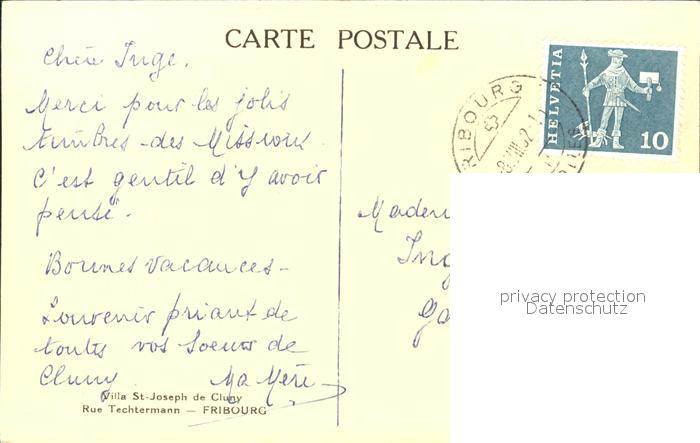 CARTE POSTALE
Chère Inge,
Merci pour les jolis
timbres-des Missions.
C'est gentil d'y avoir
pensé.
Bonnes vacances-
Souvenir priant de
toutes vos Soeurs de
Cluny Ma Mère
Villa St-Joseph de Cluny
Rue Techtermann — FRIBOURG
HELVETIA
10
FRIBOURG
Madem
Ing
privacy protection
Datenschutz